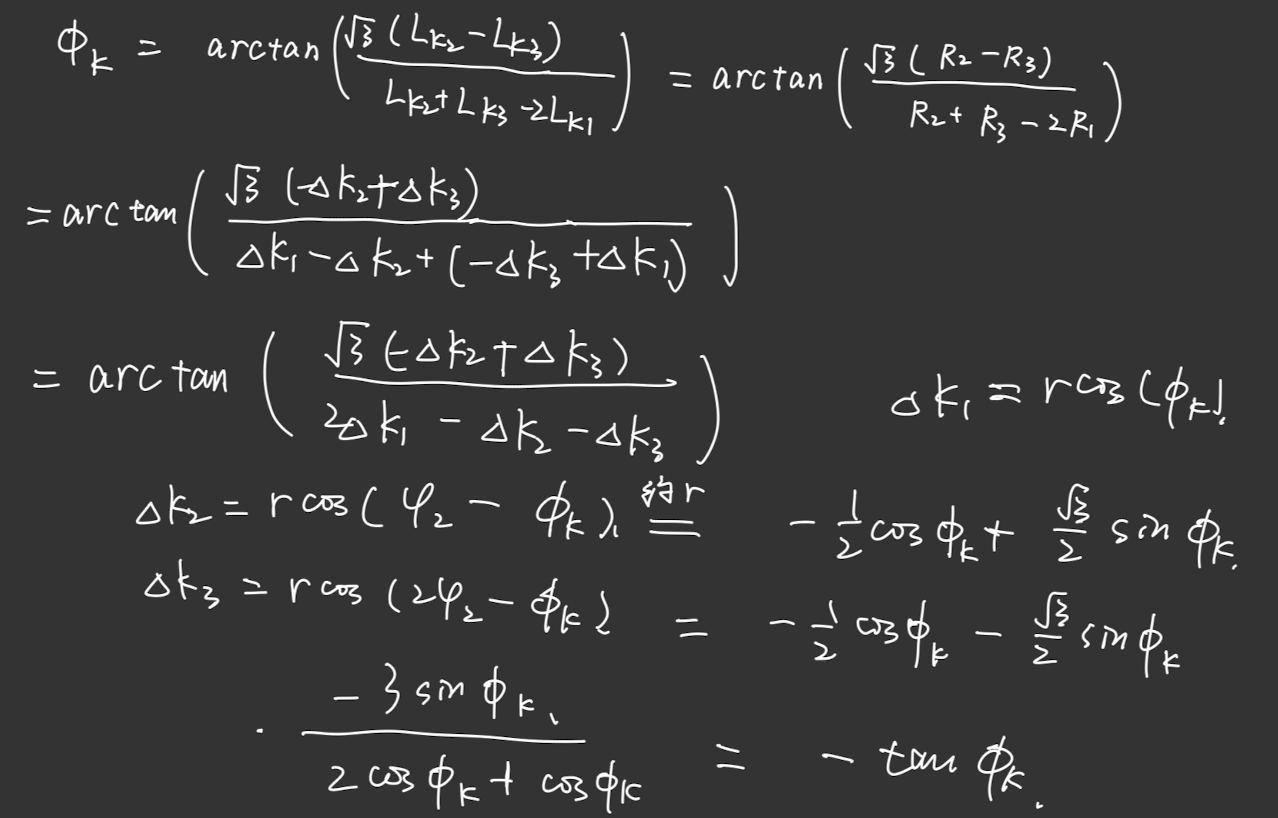 ϕ_k = arctan(√3(L_{k2}-L_{k3}) / (L_{k2}+L_{k3}-2L_{k1})) = arctan(√3(R_2-R_3) / (R_2+R_3-2R_1))
= arctan(√3(-Δk_2+Δk_3) / (Δk_1-Δk_2+(-Δk_3+Δk_1)))
= arctan(√3(-Δk_2+Δk_3) / (2Δk_1-Δk_2-Δk_3))
Δk_1 = r cos(ϕ_k).
Δk_2 = r cos(φ_2-ϕ_k), 约r = -1/2 cos ϕ_k + √3/2 sin ϕ_k.
Δk_3 = r cos(2φ_2-ϕ_k) = -1/2 cos ϕ_k - √3/2 sin ϕ_k
. (-3 sin ϕ_k) / (2 cos ϕ_k + cos ϕ_k) = -tan ϕ_k.